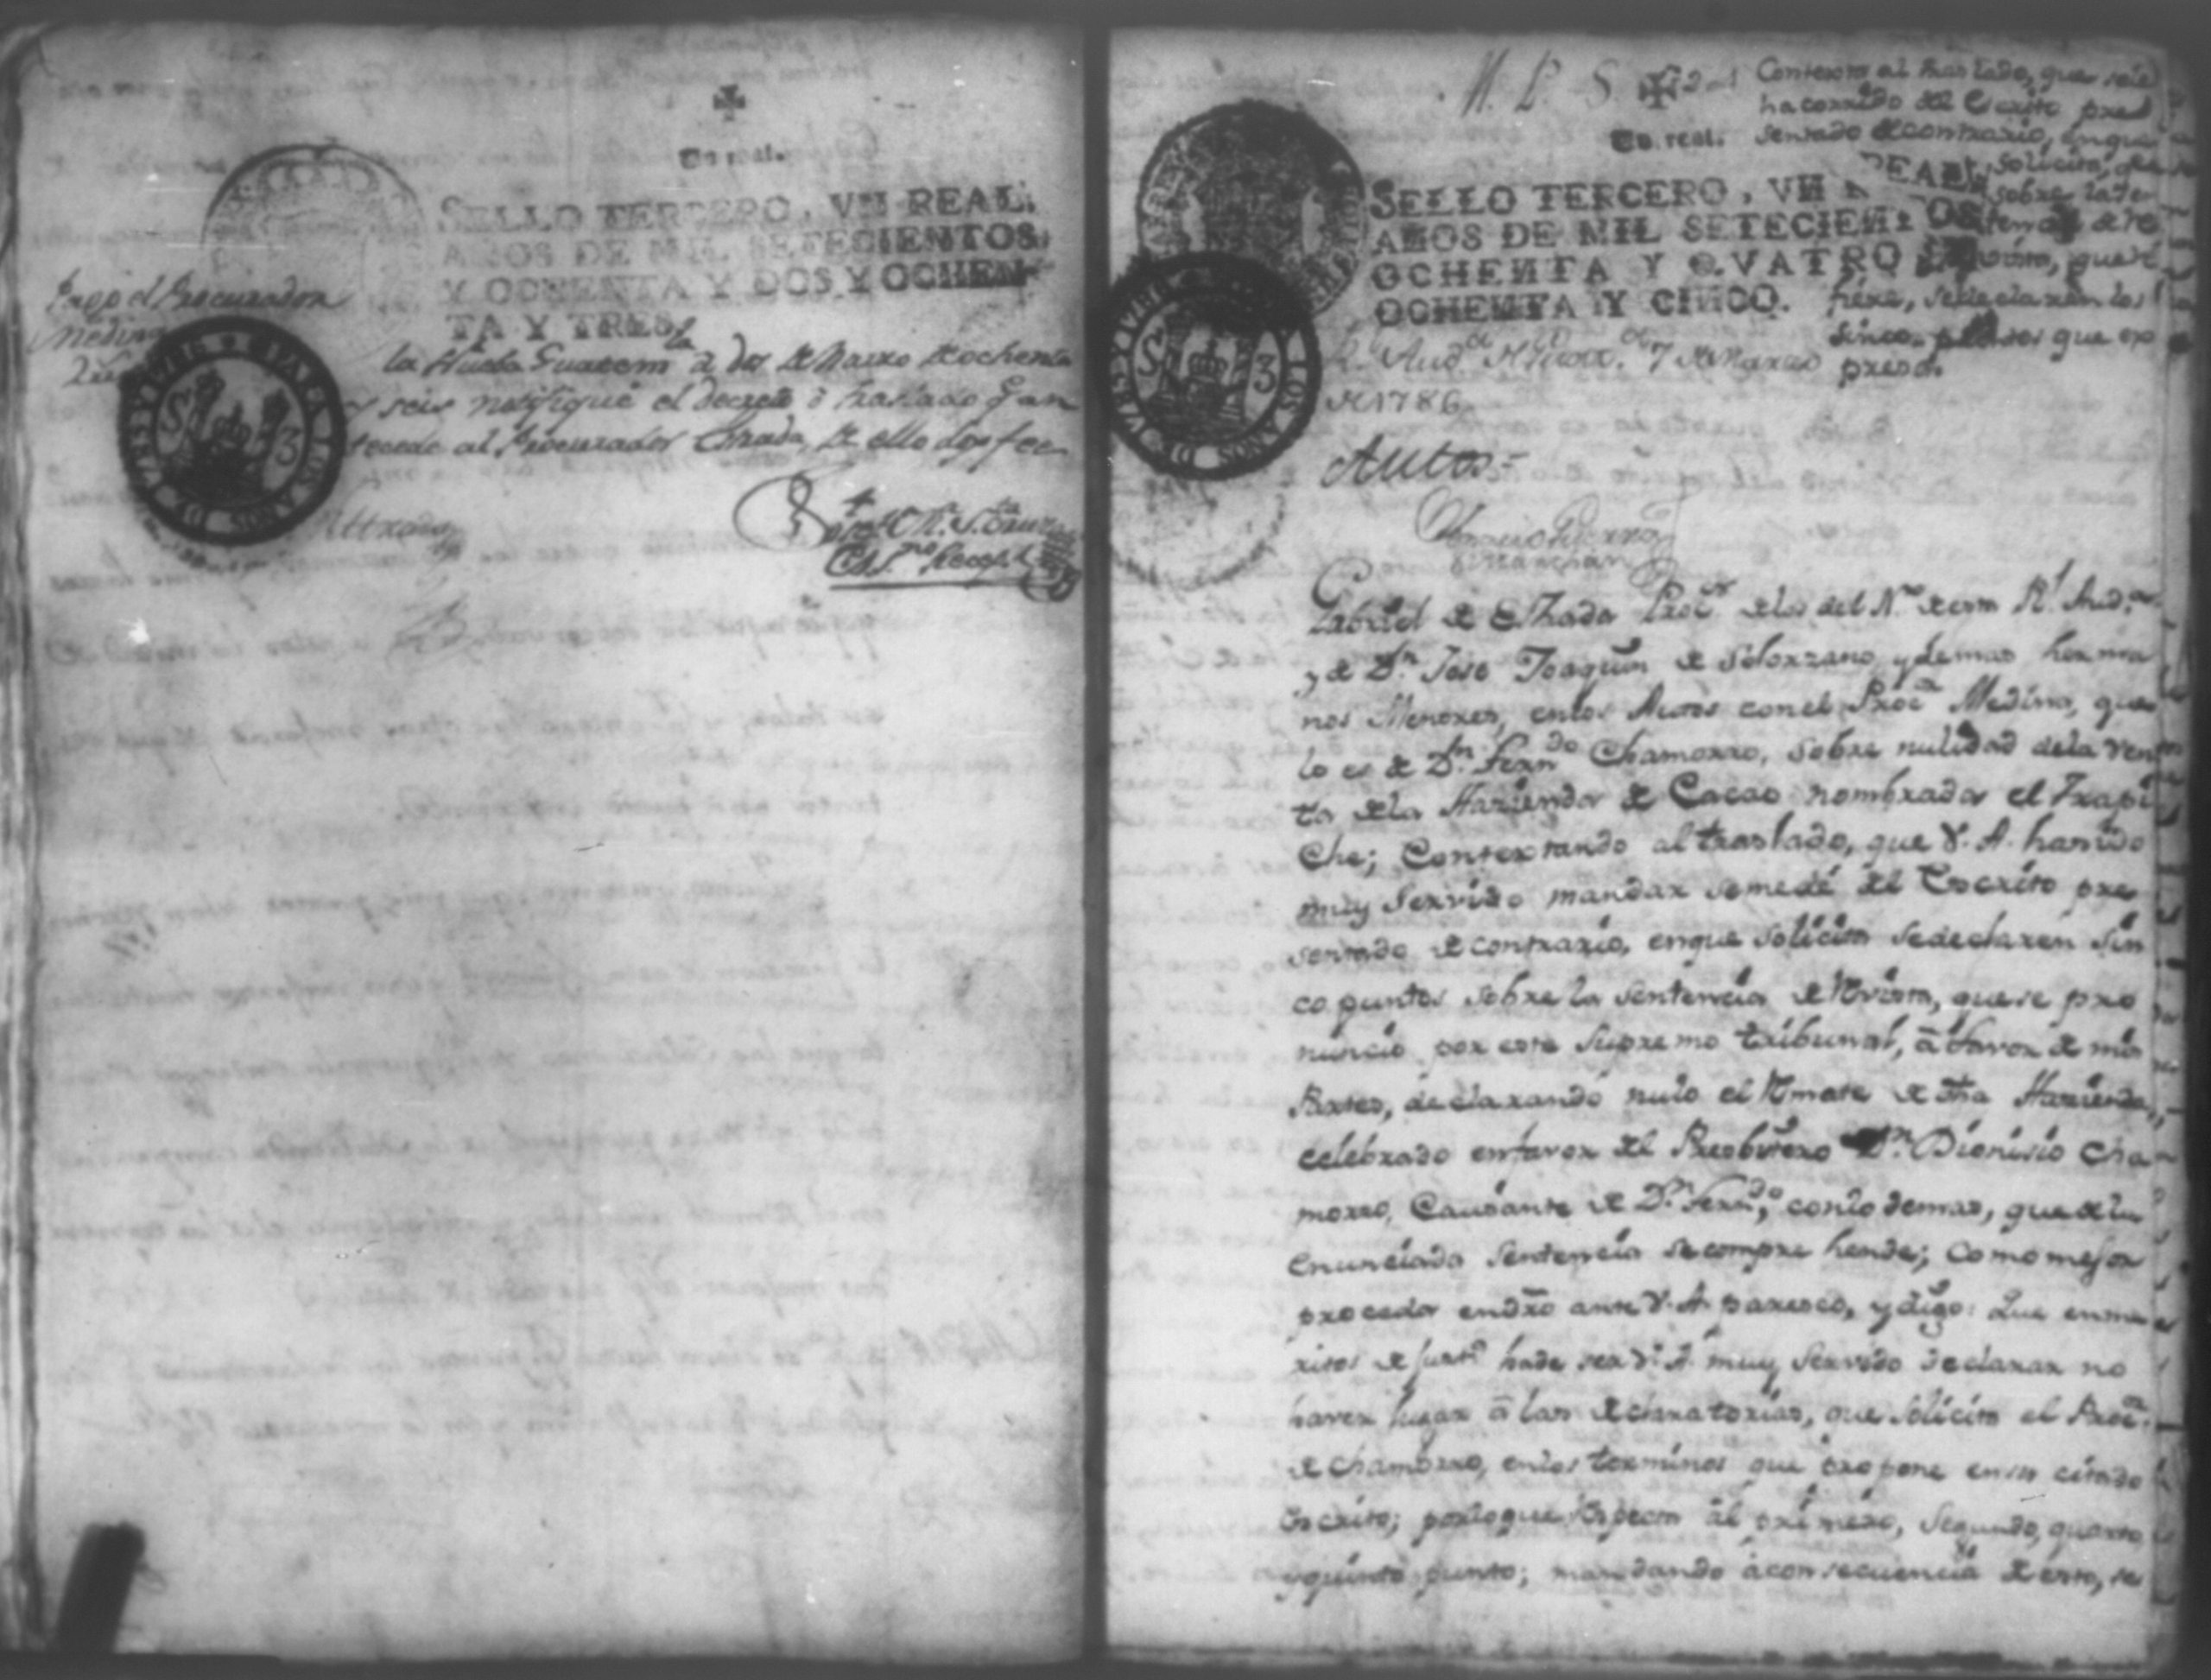 ✠
Vn real.
SELLO TERCERO, VN REAL,
AÑOS DE MIL SETECIENTOS
Y OCHENTA Y DOS Y OCHEN-
TA Y TRES.
Pago el Procurador
Medina
VALGA A LOS AÑOS DE
S 3
la Nueba Guatemla a dos de Marzo de ochenta
y seis notifiqué el decreto de traslado q. an
tecede al Procurador Estrada, de ello doy fee
Estrada
M. P. S. ✠
Vn real.
Contexta al traslado, que se le
ha corrido del Escrito pre
sentado de contrario, en que
solicita, que
sobre la Sen
tencia de re
vista, que re
fiere, se declaren los
sinco puntos que ex
presa.
SELLO TERCERO, VN REAL,
AÑOS DE MIL SETECIENTOS
OCHENTA Y QVATRO Y
OCHENTA Y CINCO.
VALGA A LOS AÑOS DE
S 3
Rl. Audª 7 de Marzo
de 1786
Autos=
Gabriel de Estrada Procor de los del No. de esta Rl. Auda.
y de Dn. Jose Joaquin de Solorzano, y demas herma
nos Menores, en los Autos con el Procor Medina, que
lo es de Dn. Ferndo Chamorro, sobre nulidad de la Ven
ta de la Hazienda de Cacao nombrada el Trapi
che; Contextando al traslado, que V. A. ha sido
muy Servido mandar se me dé del Escrito pre
sentado de contrario, en que solicita se declaren sin
co puntos sobre la Sentencia de Rvista, que se pro
nunció por este Supremo tribunal, á favor de mis
Partes, declarando nulo el Rmate de dha Hazienda,
celebrado en favor del Presbitero Dn. Dionisio Cha
morro, Causante de Dn. Ferndo, con lo demas, que de la
enunciada Sentencia se comprehende; como mejor
proceda en dro ante V. A. paresco, y digo: Que en me
ritos de justa. hade ser V. A. muy Servido declarar no
haver lugar á las declaratorias, que solicita el Procor.
de Chamorro, en los terminos que propone en su citado
Escrito; por lo que Rspecta al primero, Segundo, quarto
y quinto punto; mandando á consecuencia de esto, se